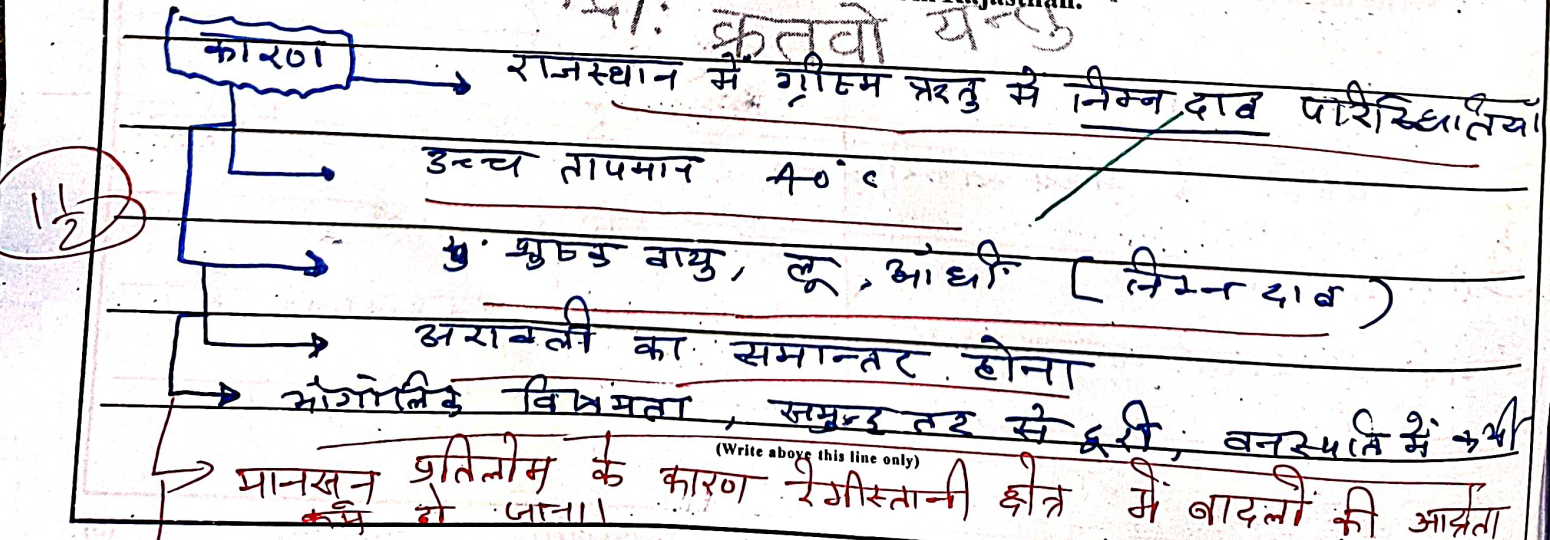 Rajasthan.
क्रतवो यन्तु
कारण
राजस्थान में ग्रीष्म ऋतु में निम्न दाब परिस्थितियाँ
उच्च तापमान 40°c
शुष्क वायु, लू, आंधी [ निम्न दाब )
1 1/2
अरावली का समान्तर होना
भौगोलिक विषमता, समुन्द्र तट से दूरी, वनस्पति में कमी
(Write above this line only)
मानसून प्रतिलोम के कारण रेगीस्तानी क्षेत्र में बादलों की आर्द्रता
कम हो जाना।